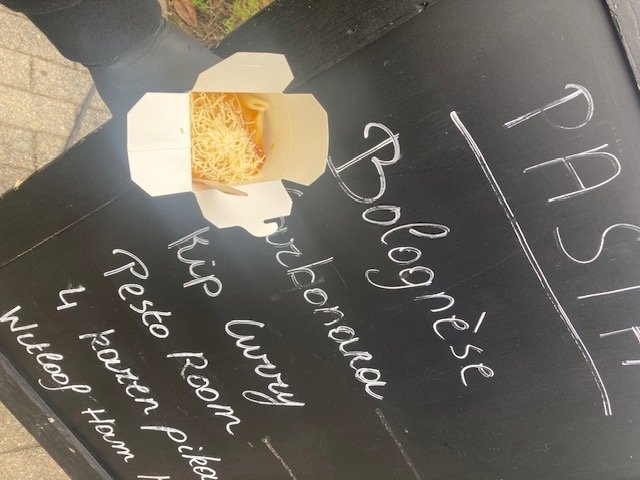 PASTA
Bolognèse
Carbonara
Kip Curry
Pesto Room
4 kazen pika
Witloof Ham